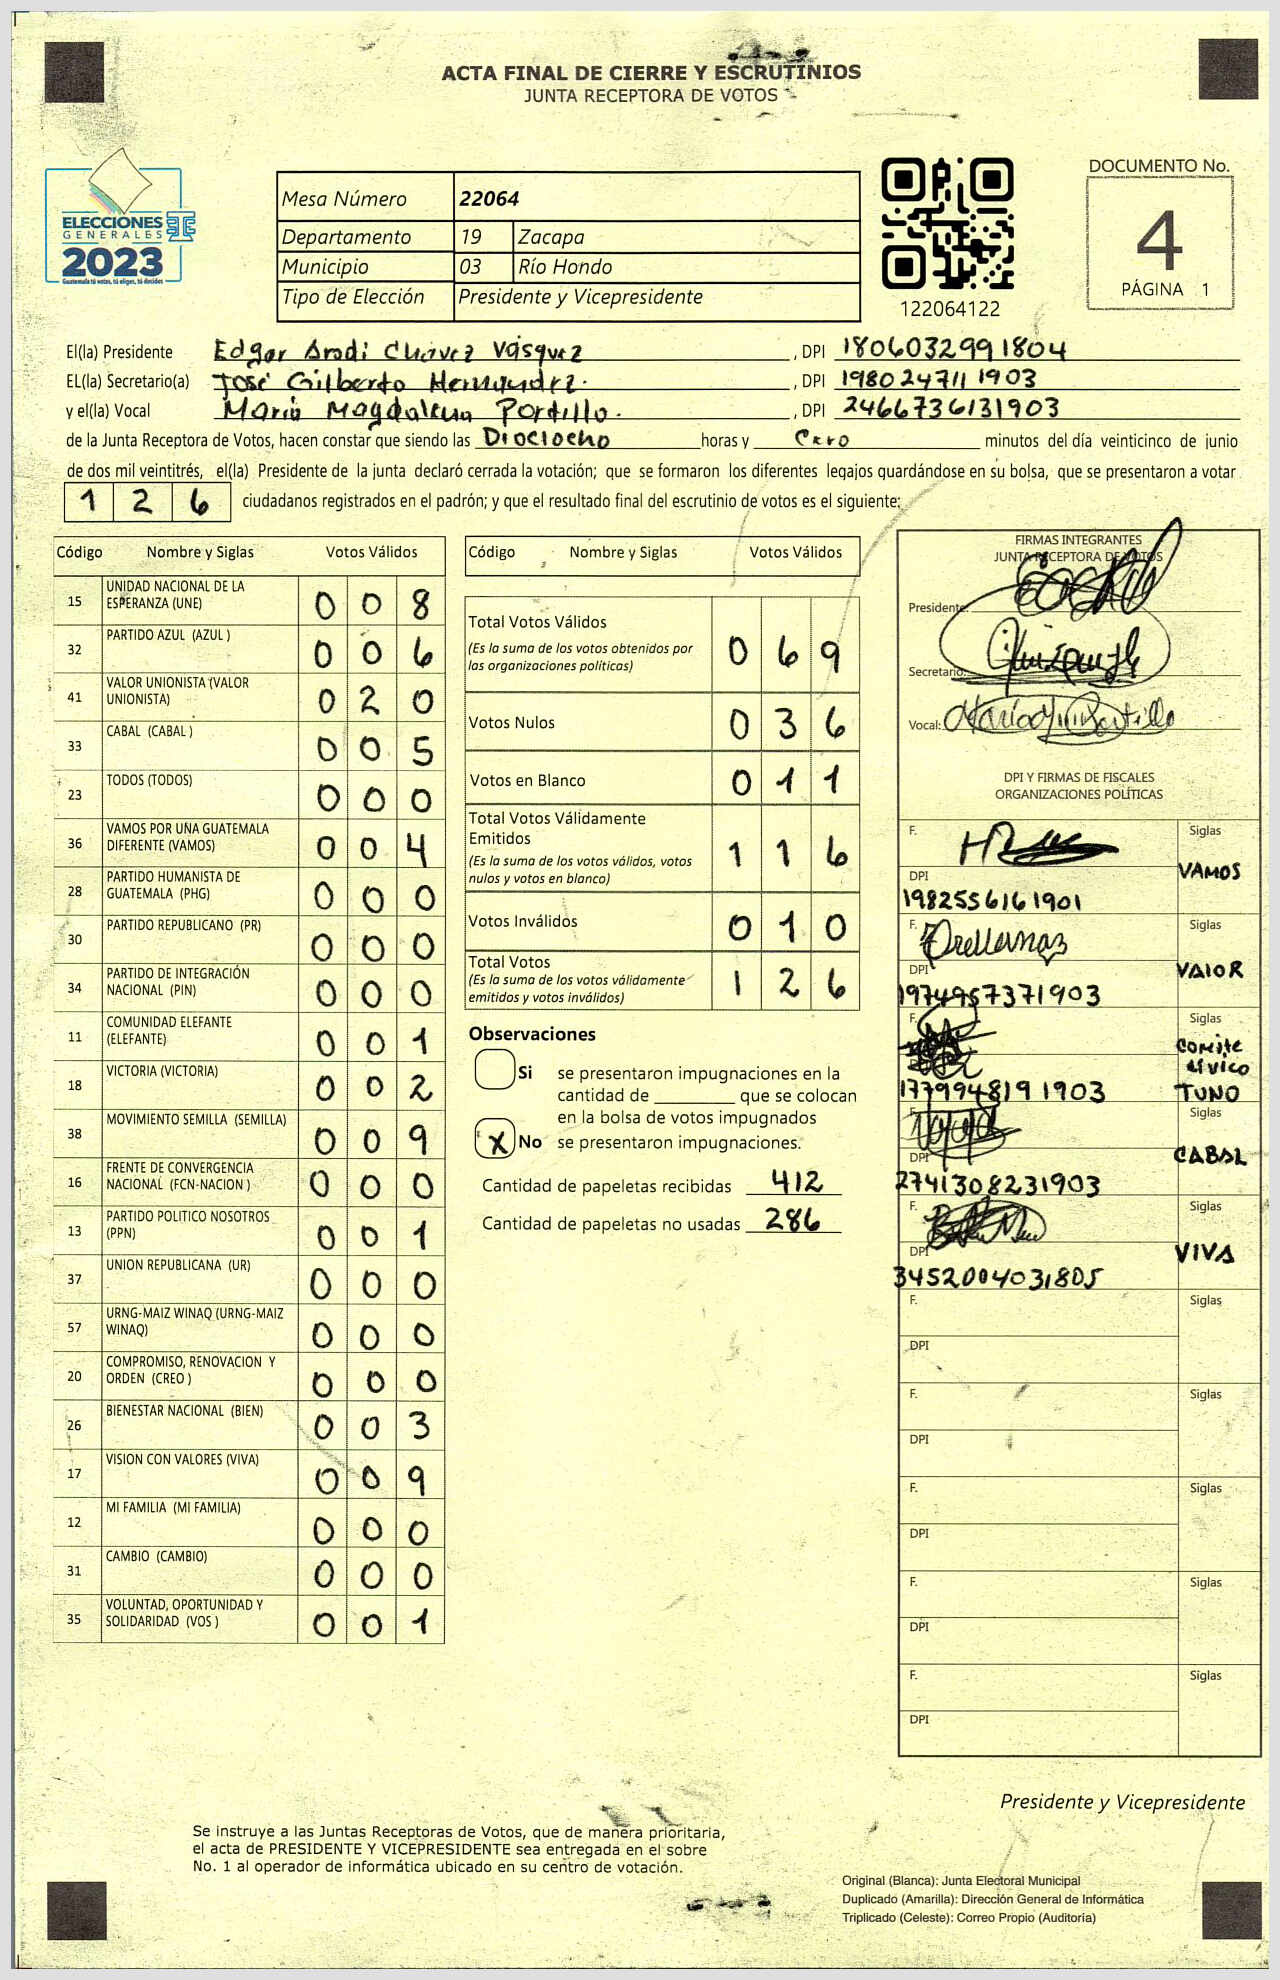 ACTA FINAL DE CIERRE Y ESCRUTINIOS
JUNTA RECEPTORA DE VOTOS
ELECCIONES
GENERALES
2023
Guatemala tú votas, tú eliges, tú decides
Mesa Número 22064
Departamento 19 Zacapa
Municipio 03 Río Hondo
Tipo de Elección Presidente y Vicepresidente
122064122
DOCUMENTO No.
4
PÁGINA 1
El(la) Presidente Edgar Arodi Chávez Vásquez , DPI 1806032991804
EL(la) Secretario(a) José Gilberto Hernández. , DPI 1980247111903
y el(la) Vocal María Magdalena Portillo. , DPI 2466736131903
de la Junta Receptora de Votos, hacen constar que siendo las Dieciocho horas y Cero minutos del día veinticinco de junio
de dos mil veintitrés, el(la) Presidente de la junta declaró cerrada la votación; que se formaron los diferentes legajos guardándose en su bolsa, que se presentaron a votar
1 2 6 ciudadanos registrados en el padrón; y que el resultado final del escrutinio de votos es el siguiente:
Código Nombre y Siglas Votos Válidos
15 UNIDAD NACIONAL DE LA ESPERANZA (UNE) 0 0 8
32 PARTIDO AZUL (AZUL ) 0 0 6
41 VALOR UNIONISTA (VALOR UNIONISTA) 0 2 0
33 CABAL (CABAL ) 0 0 5
23 TODOS (TODOS) 0 0 0
36 VAMOS POR UNA GUATEMALA DIFERENTE (VAMOS) 0 0 4
28 PARTIDO HUMANISTA DE GUATEMALA (PHG) 0 0 0
30 PARTIDO REPUBLICANO (PR) 0 0 0
34 PARTIDO DE INTEGRACIÓN NACIONAL (PIN) 0 0 0
11 COMUNIDAD ELEFANTE (ELEFANTE) 0 0 1
18 VICTORIA (VICTORIA) 0 0 2
38 MOVIMIENTO SEMILLA (SEMILLA) 0 0 9
16 FRENTE DE CONVERGENCIA NACIONAL (FCN-NACION ) 0 0 0
13 PARTIDO POLITICO NOSOTROS (PPN) 0 0 1
37 UNION REPUBLICANA (UR) 0 0 0
57 URNG-MAIZ WINAQ (URNG-MAIZ WINAQ) 0 0 0
20 COMPROMISO, RENOVACION Y ORDEN (CREO ) 0 0 0
26 BIENESTAR NACIONAL (BIEN) 0 0 3
17 VISION CON VALORES (VIVA) 0 0 9
12 MI FAMILIA (MI FAMILIA) 0 0 0
31 CAMBIO (CAMBIO) 0 0 0
35 VOLUNTAD, OPORTUNIDAD Y SOLIDARIDAD (VOS ) 0 0 1
Código Nombre y Siglas Votos Válidos
Total Votos Válidos
(Es la suma de los votos obtenidos por las organizaciones políticas) 0 6 9
Votos Nulos 0 3 6
Votos en Blanco 0 1 1
Total Votos Válidamente Emitidos
(Es la suma de los votos válidos, votos nulos y votos en blanco) 1 1 6
Votos Inválidos 0 1 0
Total Votos
(Es la suma de los votos válidamente emitidos y votos inválidos) 1 2 6
Observaciones
Si se presentaron impugnaciones en la
cantidad de ________ que se colocan
en la bolsa de votos impugnados
X No se presentaron impugnaciones.
Cantidad de papeletas recibidas 412
Cantidad de papeletas no usadas 286
FIRMAS INTEGRANTES
JUNTA RECEPTORA DE VOTOS
Presidente:
Secretario:
Vocal:
DPI Y FIRMAS DE FISCALES
ORGANIZACIONES POLÍTICAS
F. Siglas
VAMOS
DPI
1982556161901
F. Orellana Siglas
VALOR
DPI
1974957371903
F. Siglas
Comite
Civico
TUNO
DPI
1779948191903
F. Siglas
CABAL
DPI
2741308231903
F. Siglas
VIVA
DPI
3452004031805
F. Siglas
DPI
F. Siglas
DPI
F. Siglas
DPI
F. Siglas
DPI
F. Siglas
DPI
Presidente y Vicepresidente
Se instruye a las Juntas Receptoras de Votos, que de manera prioritaria,
el acta de PRESIDENTE Y VICEPRESIDENTE sea entregada en el sobre
No. 1 al operador de informática ubicado en su centro de votación.
Original (Blanca): Junta Electoral Municipal
Duplicado (Amarilla): Dirección General de Informática
Triplicado (Celeste): Correo Propio (Auditoría)